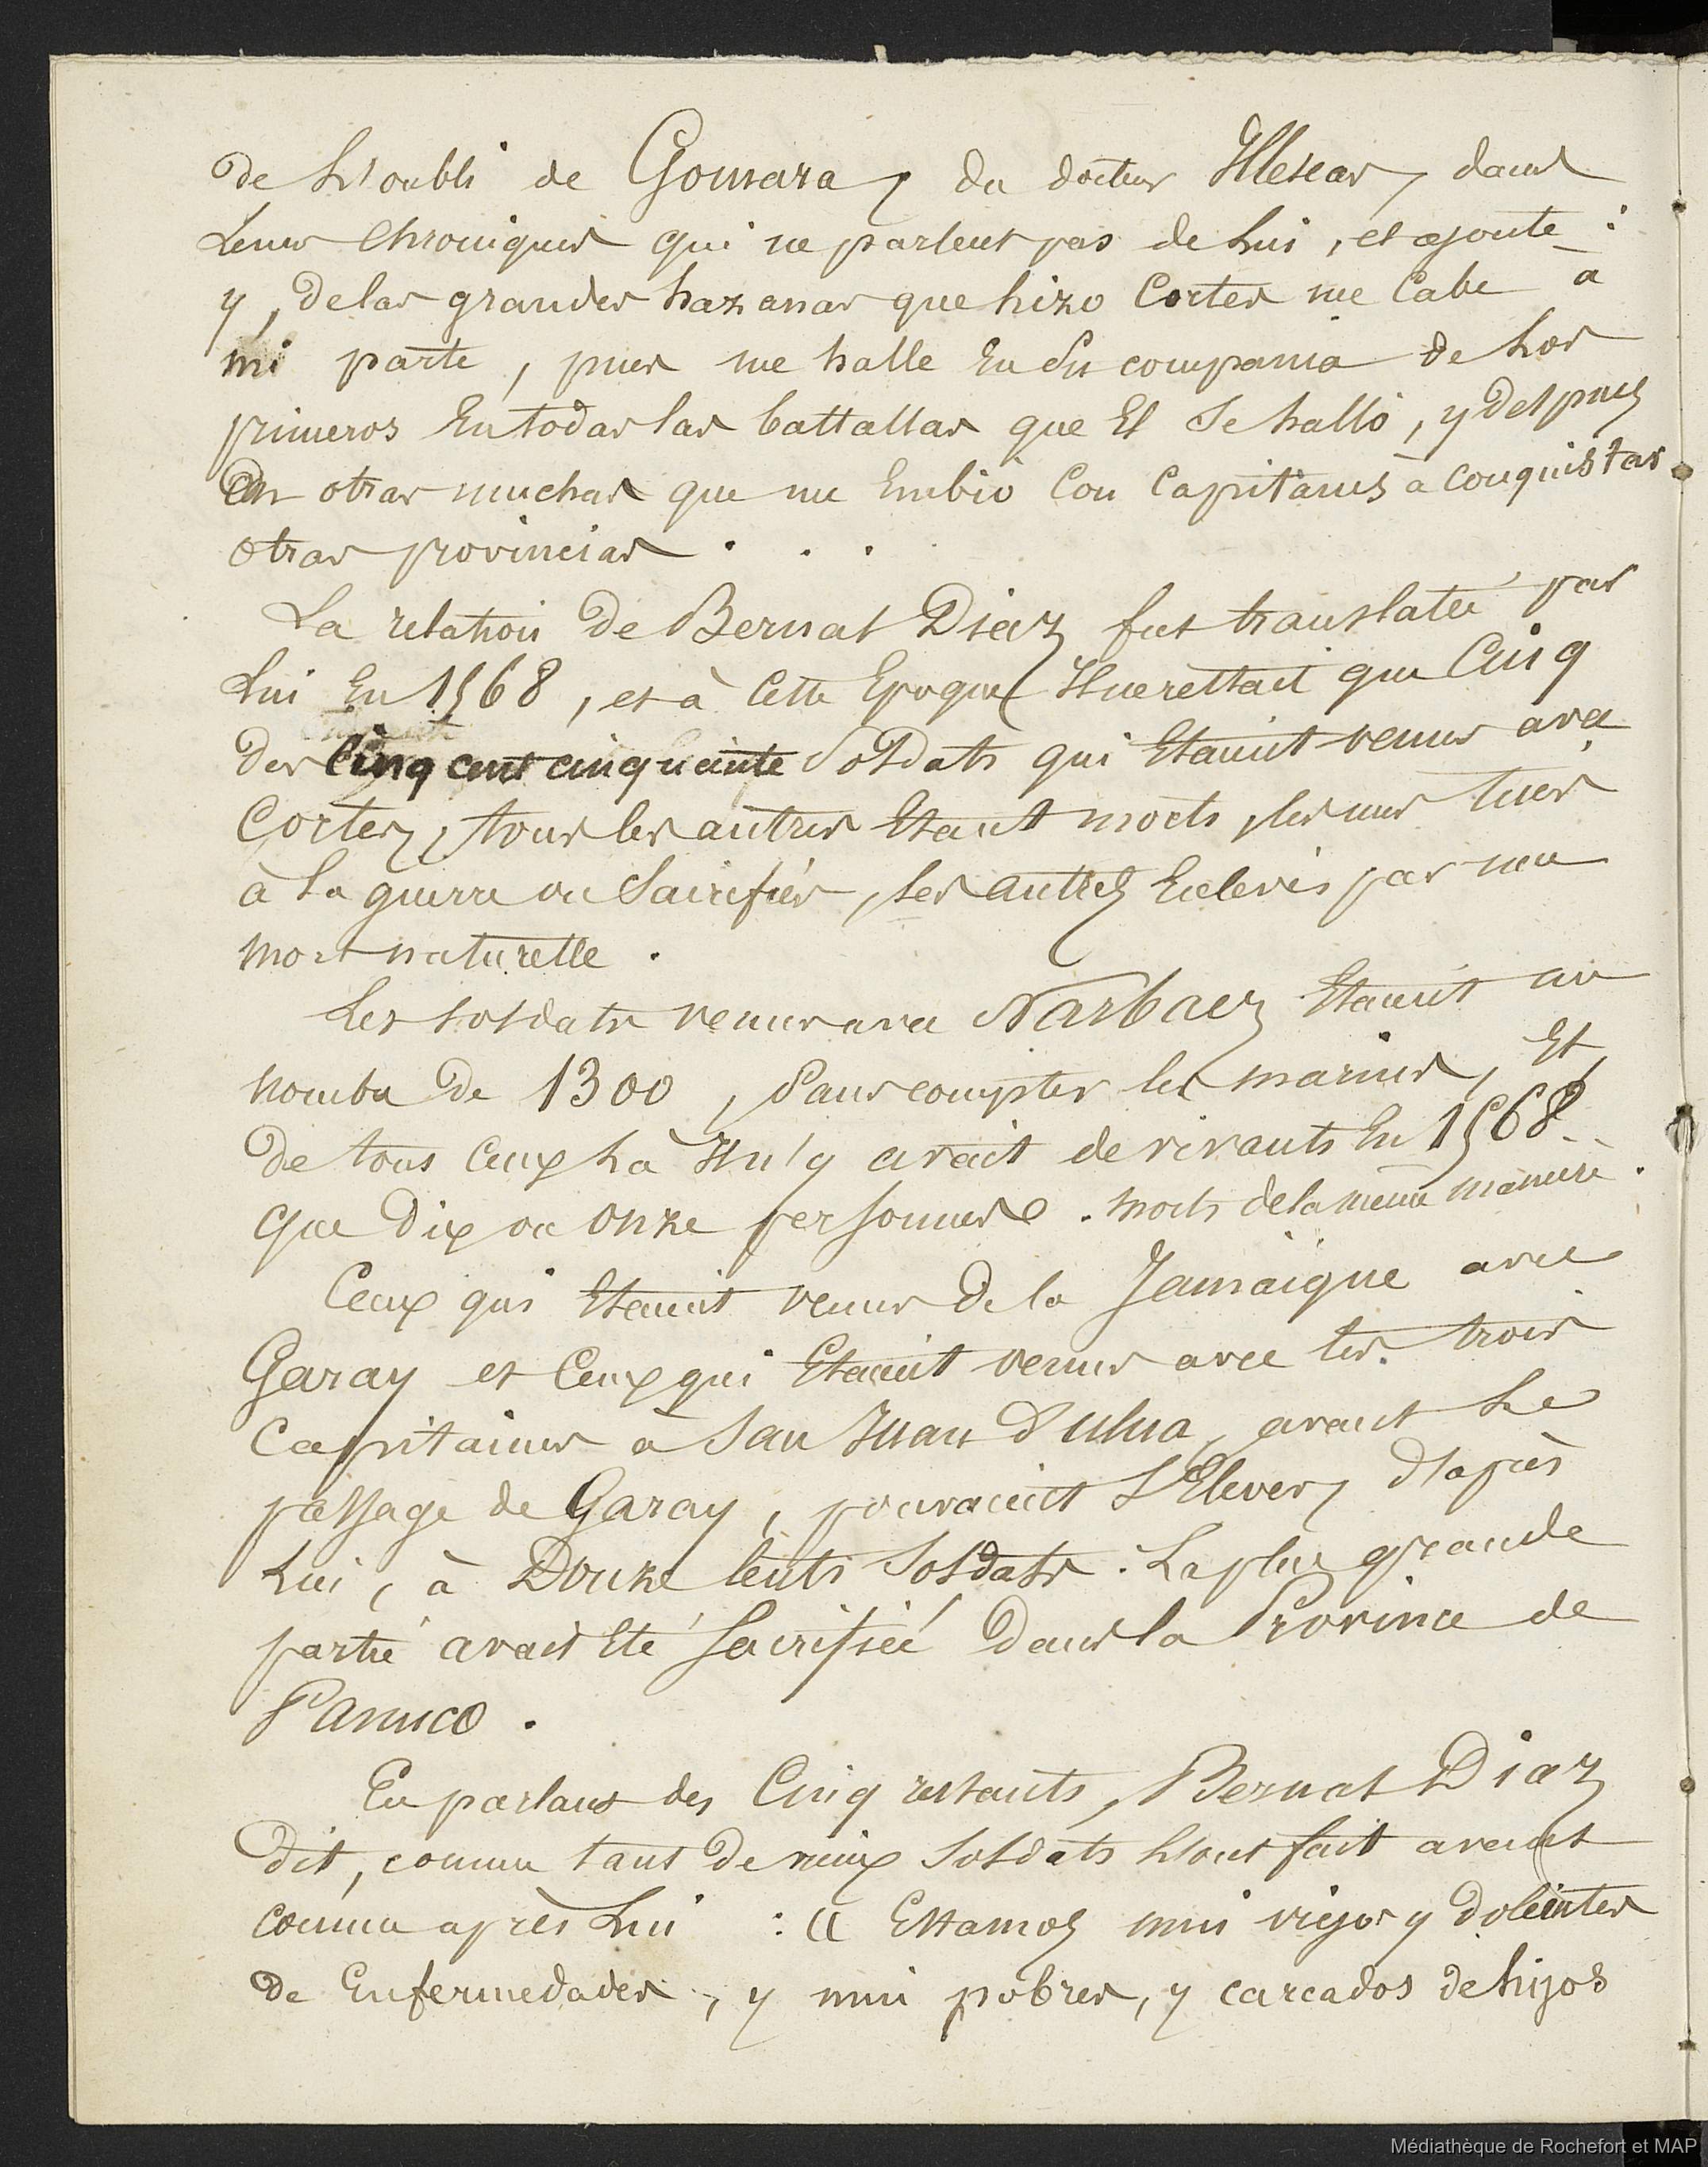 de L'oubli de Gomara, du docteur Illescas, dans
Leurs Chroniques qui ne parlent pas de Lui, et ajoute :
y, de las grandes hazanas que hizo Cortes me Cabe a
mi parte, pues me halle En su compania de Los
primeros En todas las battallas que El Se halló, y despues
En otras muchas que me Embió Con Capitanes à conquistar
otras provincias . . .
La relation de Bernal Diaz fut translatée par
Lui En 1568, et à Cette Epoque Il ne restait que Cinq
des Cinq cent cinquante Soldats qui Etaient venus avec
Cortez, tous les autres Etant morts, les uns tués
à La guerre ou Sacrifiés, les autres Enlevés par une
mort naturelle.
Les soldats venus avec Narbaez Etaient au
nombre de 1300, Sans compter les marins, Et
de tous Ceux Là Il n'y avait de vivants En 1568
que Dix ou Onze personnes. morts de la même manière.
Ceux qui Etaient venus de la Jamaïque avec
Garay et Ceux qui Etaient venus avec les trois
Capitaines à San Juan d'ulua, avant Le
passage de Garay, pouvaient S'Elever, d'après
Lui, à Douze Cents Soldats. La plus grande
partie avait Eté Sacrifiée Dans la Province de
Panuco.
En parlant des Cinq restants, Bernal Diaz
dit, comme tant de vieux Soldats L'ont fait avant
comme après Lui : « Estamos mui viejos y dolientes
de Enfermedades, y mui pobres, y carcados de hijos
Médiathèque de Rochefort et MAP